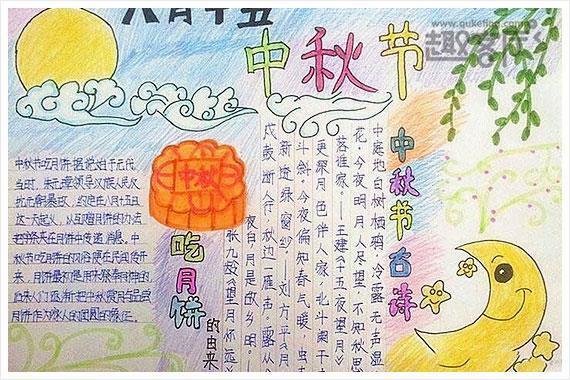 八月十五
中秋节
www.quketing.com
中秋节吃月饼据说始于元代
当时，朱元璋领导汉族人民
抗元朝暴政，约定在八月十五日
这一天起义，以互赠月饼的办法
把字条夹在月饼中传递消息。中
秋节吃月饼的习俗便在民间传开
来，月饼最初是用来祭奉月神的
后来人们逐渐把中秋赏月与品尝
月饼作为家人的团圆的象征。
中秋
吃月饼
的由来
中秋节古诗
中庭地白树栖鸦，冷露无声湿
花，今夜明月人尽望，不知秋思
落谁家。——王建《十五夜望月》
更深月色半人家，北斗阑干
斗斜，今夜偏知春气暖，虫
新透绿窗纱。——刘方平《月
戍鼓断人行，秋边一雁声。露从
夜白，月是故乡明。
张九龄《望月怀远》